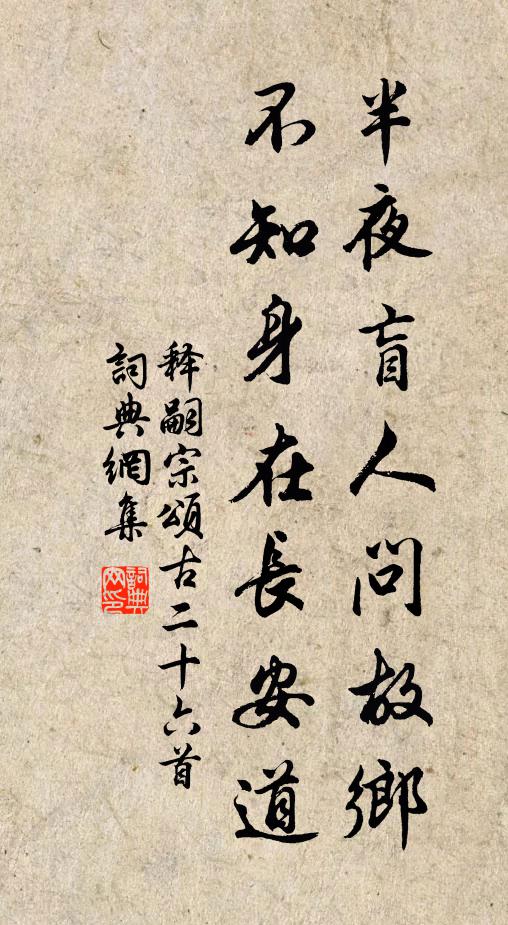 半夜盲人問故鄉
不知身在長安道
释嗣宗頌古二十六首
詞典網集
詞典網印